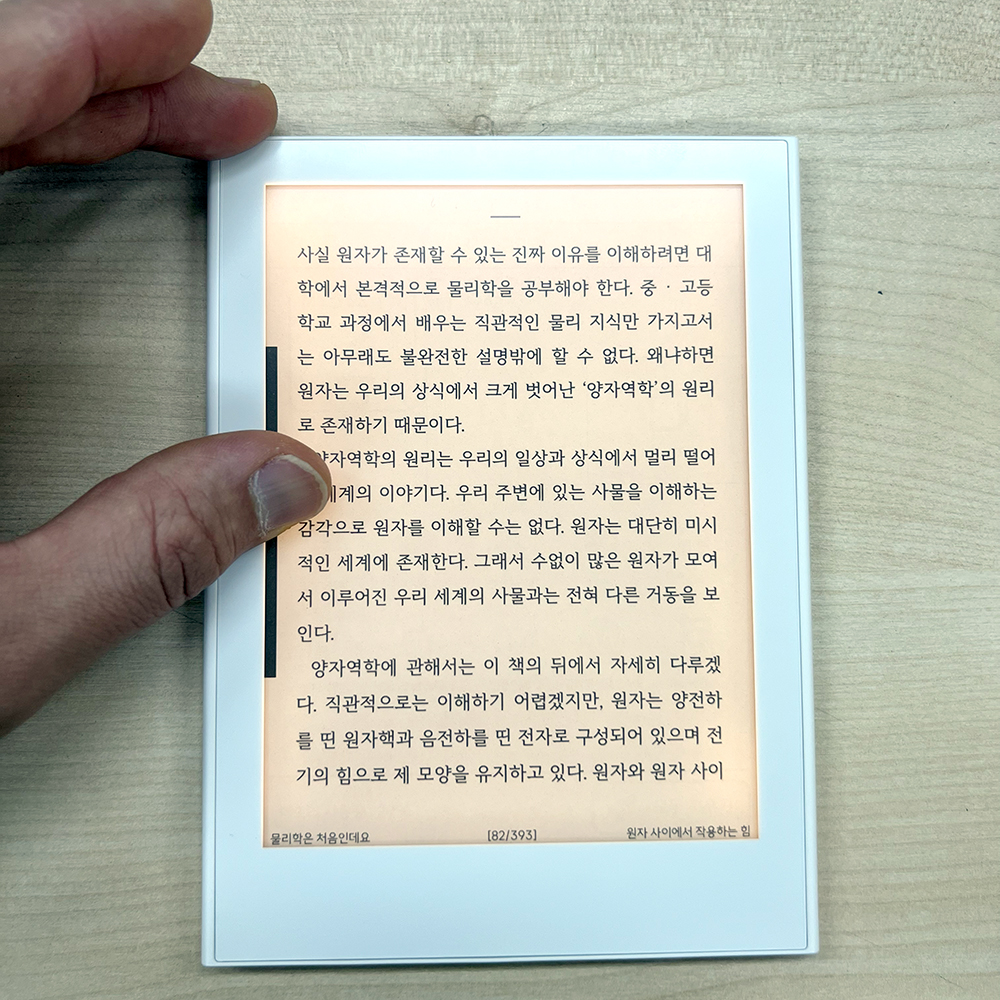 사실 원자가 존재할 수 있는 진짜 이유를 이해하려면 대
학에서 본격적으로 물리학을 공부해야 한다. 중 · 고등
학교 과정에서 배우는 직관적인 물리 지식만 가지고서
는 아무래도 불완전한 설명밖에 할 수 없다. 왜냐하면
원자는 우리의 상식에서 크게 벗어난 ‘양자역학’의 원리
로 존재하기 때문이다.
양자역학의 원리는 우리의 일상과 상식에서 멀리 떨어
이야기다. 우리 주변에 있는 사물을 이해하는
감각으로 원자를 이해할 수는 없다. 원자는 대단히 미시
적인 세계에 존재한다. 그래서 수없이 많은 원자가 모여
서 이루어진 우리 세계의 사물과는 전혀 다른 거동을 보
인다.
양자역학에 관해서는 이 책의 뒤에서 자세히 다루겠
다. 직관적으로는 이해하기 어렵겠지만, 원자는 양전하
를 띤 원자핵과 음전하를 띤 전자로 구성되어 있으며 전
기의 힘으로 제 모양을 유지하고 있다. 원자와 원자 사이
물리학은 처음인데요 [82/393] 원자 사이에서 작용하는 힘